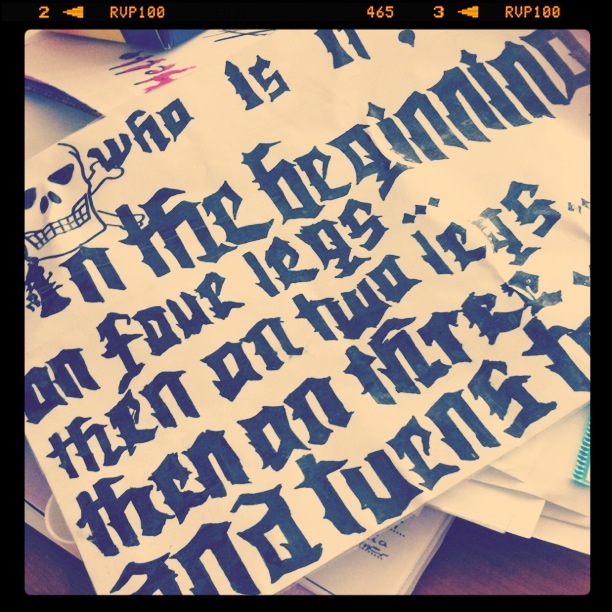 2 RVP100 465 3 RVP100
who is it
in the beginning
on foue legs ..
then on two legs ..
then on three
and turns